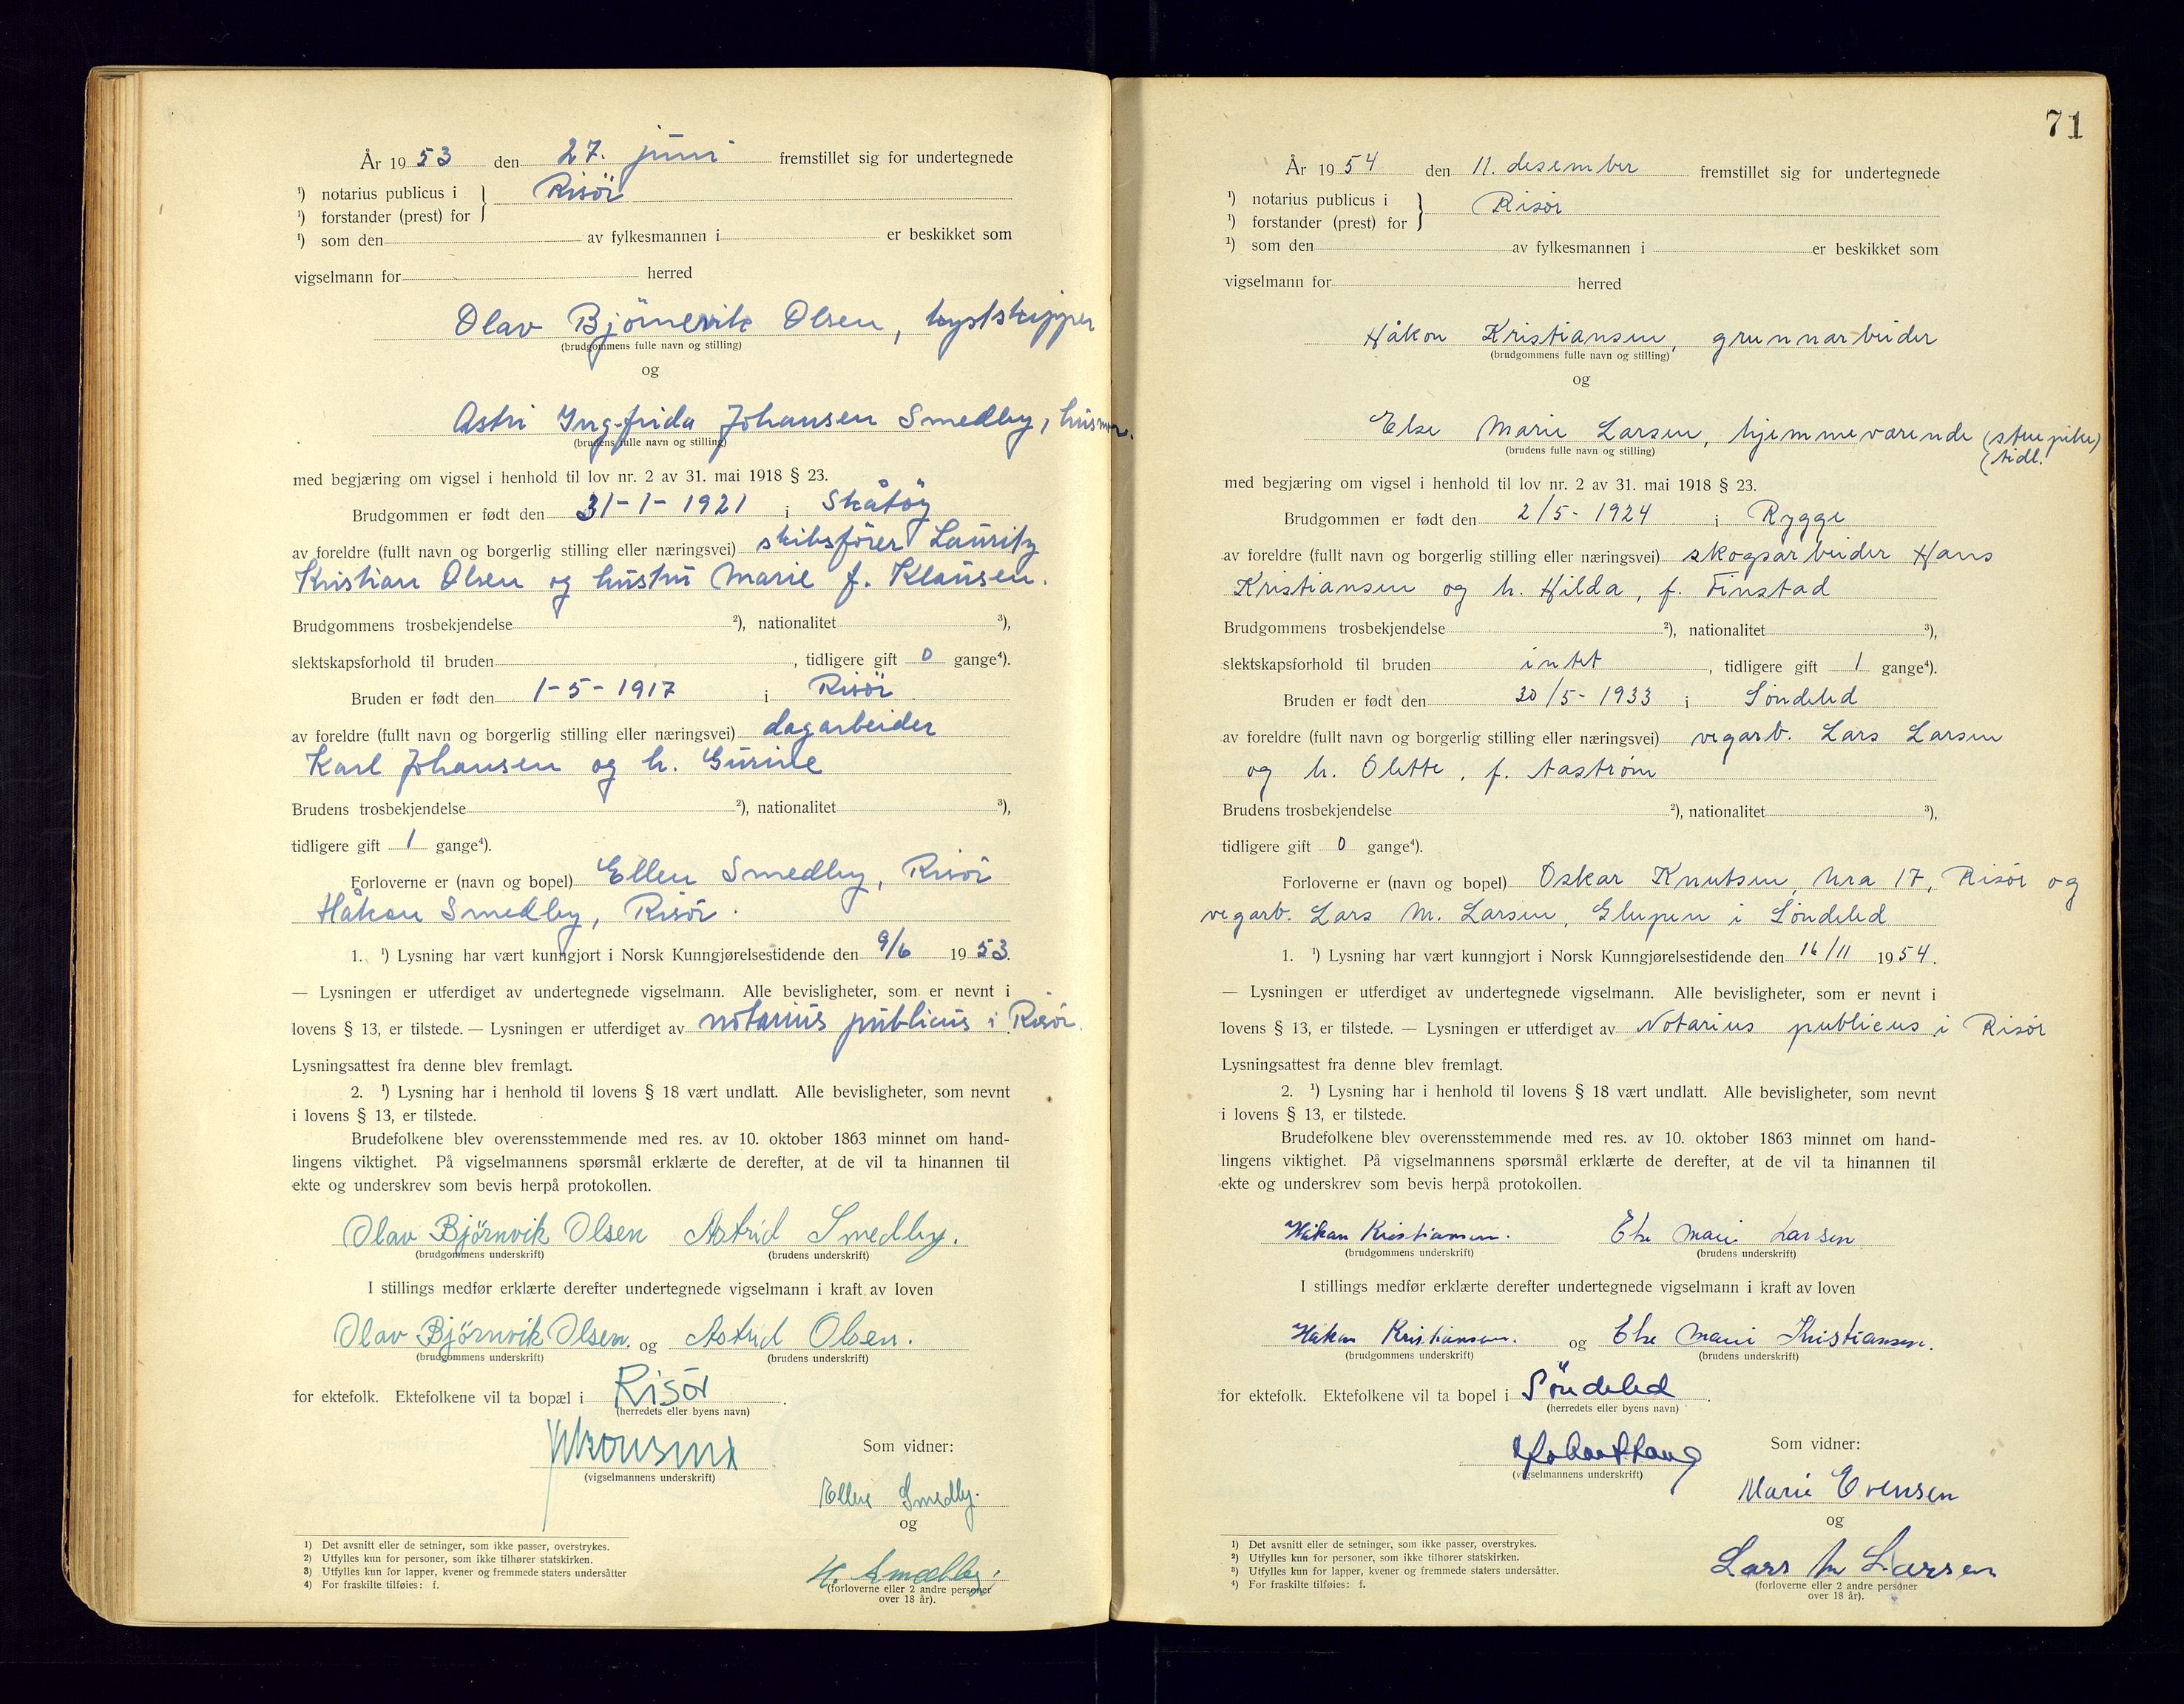 År 1953 den 27. juni fremstillet sig for undertegnede
¹) notarius publicus i } Risör
¹) forstander (prest) for
¹) som den av fylkesmannen i er beskikket som
vigselmann for herred
Olav Björnevik Olsen, kystskipper
(brudgommens fulle navn og stilling)
og
Astri Ingfrida Johansen Smedby, husmor.
(brudens fulle navn og stilling)
med begjæring om vigsel i henhold til lov nr. 2 av 31. mai 1918 § 23.
Brudgommen er født den 31-1-1921 i Skåtöy
av foreldre (fullt navn og borgerlig stilling eller næringsvei) skibsfører Lauritz
Kristian Olsen og hustru Marie f. Klausen.
Brudgommens trosbekjendelse ²), nationalitet ³),
slektskapsforhold til bruden , tidligere gift 0 gange⁴).
Bruden er født den 1-5-1917 i Risör
av foreldre (fullt navn og borgerlig stilling eller næringsvei) dagarbeider
Karl Johansen og h. Gurine
Brudens trosbekjendelse ²), nationalitet ³),
tidligere gift 1 gange⁴).
Forloverne er (navn og bopel) Ellen Smedby, Risör
Håkon Smedby, Risör.
1. ¹) Lysning har vært kunngjort i Norsk Kunngjørelsestidende den 9/6 1953.
— Lysningen er utferdiget av undertegnede vigselmann. Alle bevisligheter, som er nevnt i
lovens § 13, er tilstede. — Lysningen er utferdiget av notarius publicus i Risör.
Lysningsattest fra denne blev fremlagt.
2. ¹) Lysning har i henhold til lovens § 18 vært undlatt. Alle bevisligheter, som nevnt
i lovens § 13, er tilstede.
Brudefolkene blev overensstemmende med res. av 10. oktober 1863 minnet om hand-
lingens viktighet. På vigselmannens spørsmål erklærte de derefter, at de vil ta hinannen til
ekte og underskrev som bevis herpå protokollen.
Olav Björnvik Olsen Astrid Smedby.
(brudgommens underskrift) (brudens underskrift)
I stillings medfør erklærte derefter undertegnede vigselmann i kraft av loven
Olav Björnvik Olsen. og Astrid Olsen.
(brudgommens underskrift) (brudens underskrift)
for ektefolk. Ektefolkene vil ta bopæl i Risör.
(herredets eller byens navn)
Som vidner:
(vigselmannens underskrift)
Ellen Smedby.
og
H. Smedby.
(forloverne eller 2 andre personer
over 18 år).
1) Det avsnitt eller de setninger, som ikke passer, overstrykes.
2) Utfylles kun for personer, som ikke tilhører statskirken.
3) Utfylles kun for lapper, kvener og fremmede staters undersåtter
4) For fraskilte tilføies: f.
71
År 1954 den 11. desember fremstillet sig for undertegnede
¹) notarius publicus i } Risør
¹) forstander (prest) for
¹) som den av fylkesmannen i er beskikket som
vigselmann for herred
Håkon Kristiansen, grunnarbeider
(brudgommens fulle navn og stilling)
og
Else Marie Larsen, hjemmeværende (stuepike)
(tidl.
(brudens fulle navn og stilling)
med begjæring om vigsel i henhold til lov nr. 2 av 31. mai 1918 § 23.
Brudgommen er født den 2/5-1924 i Rygge
av foreldre (fullt navn og borgerlig stilling eller næringsvei) skogsarbeider Hans
Kristiansen og h. Hilda, f. Finstad
Brudgommens trosbekjendelse ²), nationalitet ³),
slektskapsforhold til bruden intet , tidligere gift 1 gange⁴).
Bruden er født den 30/5-1933 i Søndeled
av foreldre (fullt navn og borgerlig stilling eller næringsvei) vegarb. Lars Larsen
og h. Olette, f. Aastrøm
Brudens trosbekjendelse ²), nationalitet ³),
tidligere gift 0 gange⁴).
Forloverne er (navn og bopel) Oskar Knutsen, Ura 17, Risør og
vegarb. Lars M. Larsen, Glupen i Søndeled
1. ¹) Lysning har vært kunngjort i Norsk Kunngjørelsestidende den 16/11 1954.
— Lysningen er utferdiget av undertegnede vigselmann. Alle bevisligheter, som er nevnt i
lovens § 13, er tilstede. — Lysningen er utferdiget av Notarius publicus i Risør
Lysningsattest fra denne blev fremlagt.
2. ¹) Lysning har i henhold til lovens § 18 vært undlatt. Alle bevisligheter, som nevnt
i lovens § 13, er tilstede.
Brudefolkene blev overensstemmende med res. av 10. oktober 1863 minnet om hand-
lingens viktighet. På vigselmannens spørsmål erklærte de derefter, at de vil ta hinannen til
ekte og underskrev som bevis herpå protokollen.
Håkon Kristiansen. Else Marie Larsen
(brudgommens underskrift) (brudens underskrift)
I stillings medfør erklærte derefter undertegnede vigselmann i kraft av loven
Håkon Kristiansen. og Else Marie Kristiansen.
(brudgommens underskrift) (brudens underskrift)
for ektefolk. Ektefolkene vil ta bopel i Söndeled.
(herredets eller byens navn)
Som vidner:
(vigselmannens underskrift)
Marie Evensen
og
Lars M Larsen
(forloverne eller 2 andre personer
over 18 år).
1) Det avsnitt eller de setninger, som ikke passer, overstrykes.
2) Utfylles kun for personer, som ikke tilhører statskirken.
3) Utfylles kun for lapper, kvener og fremmede staters undersåtter.
4) For fraskilte tilføies: f.